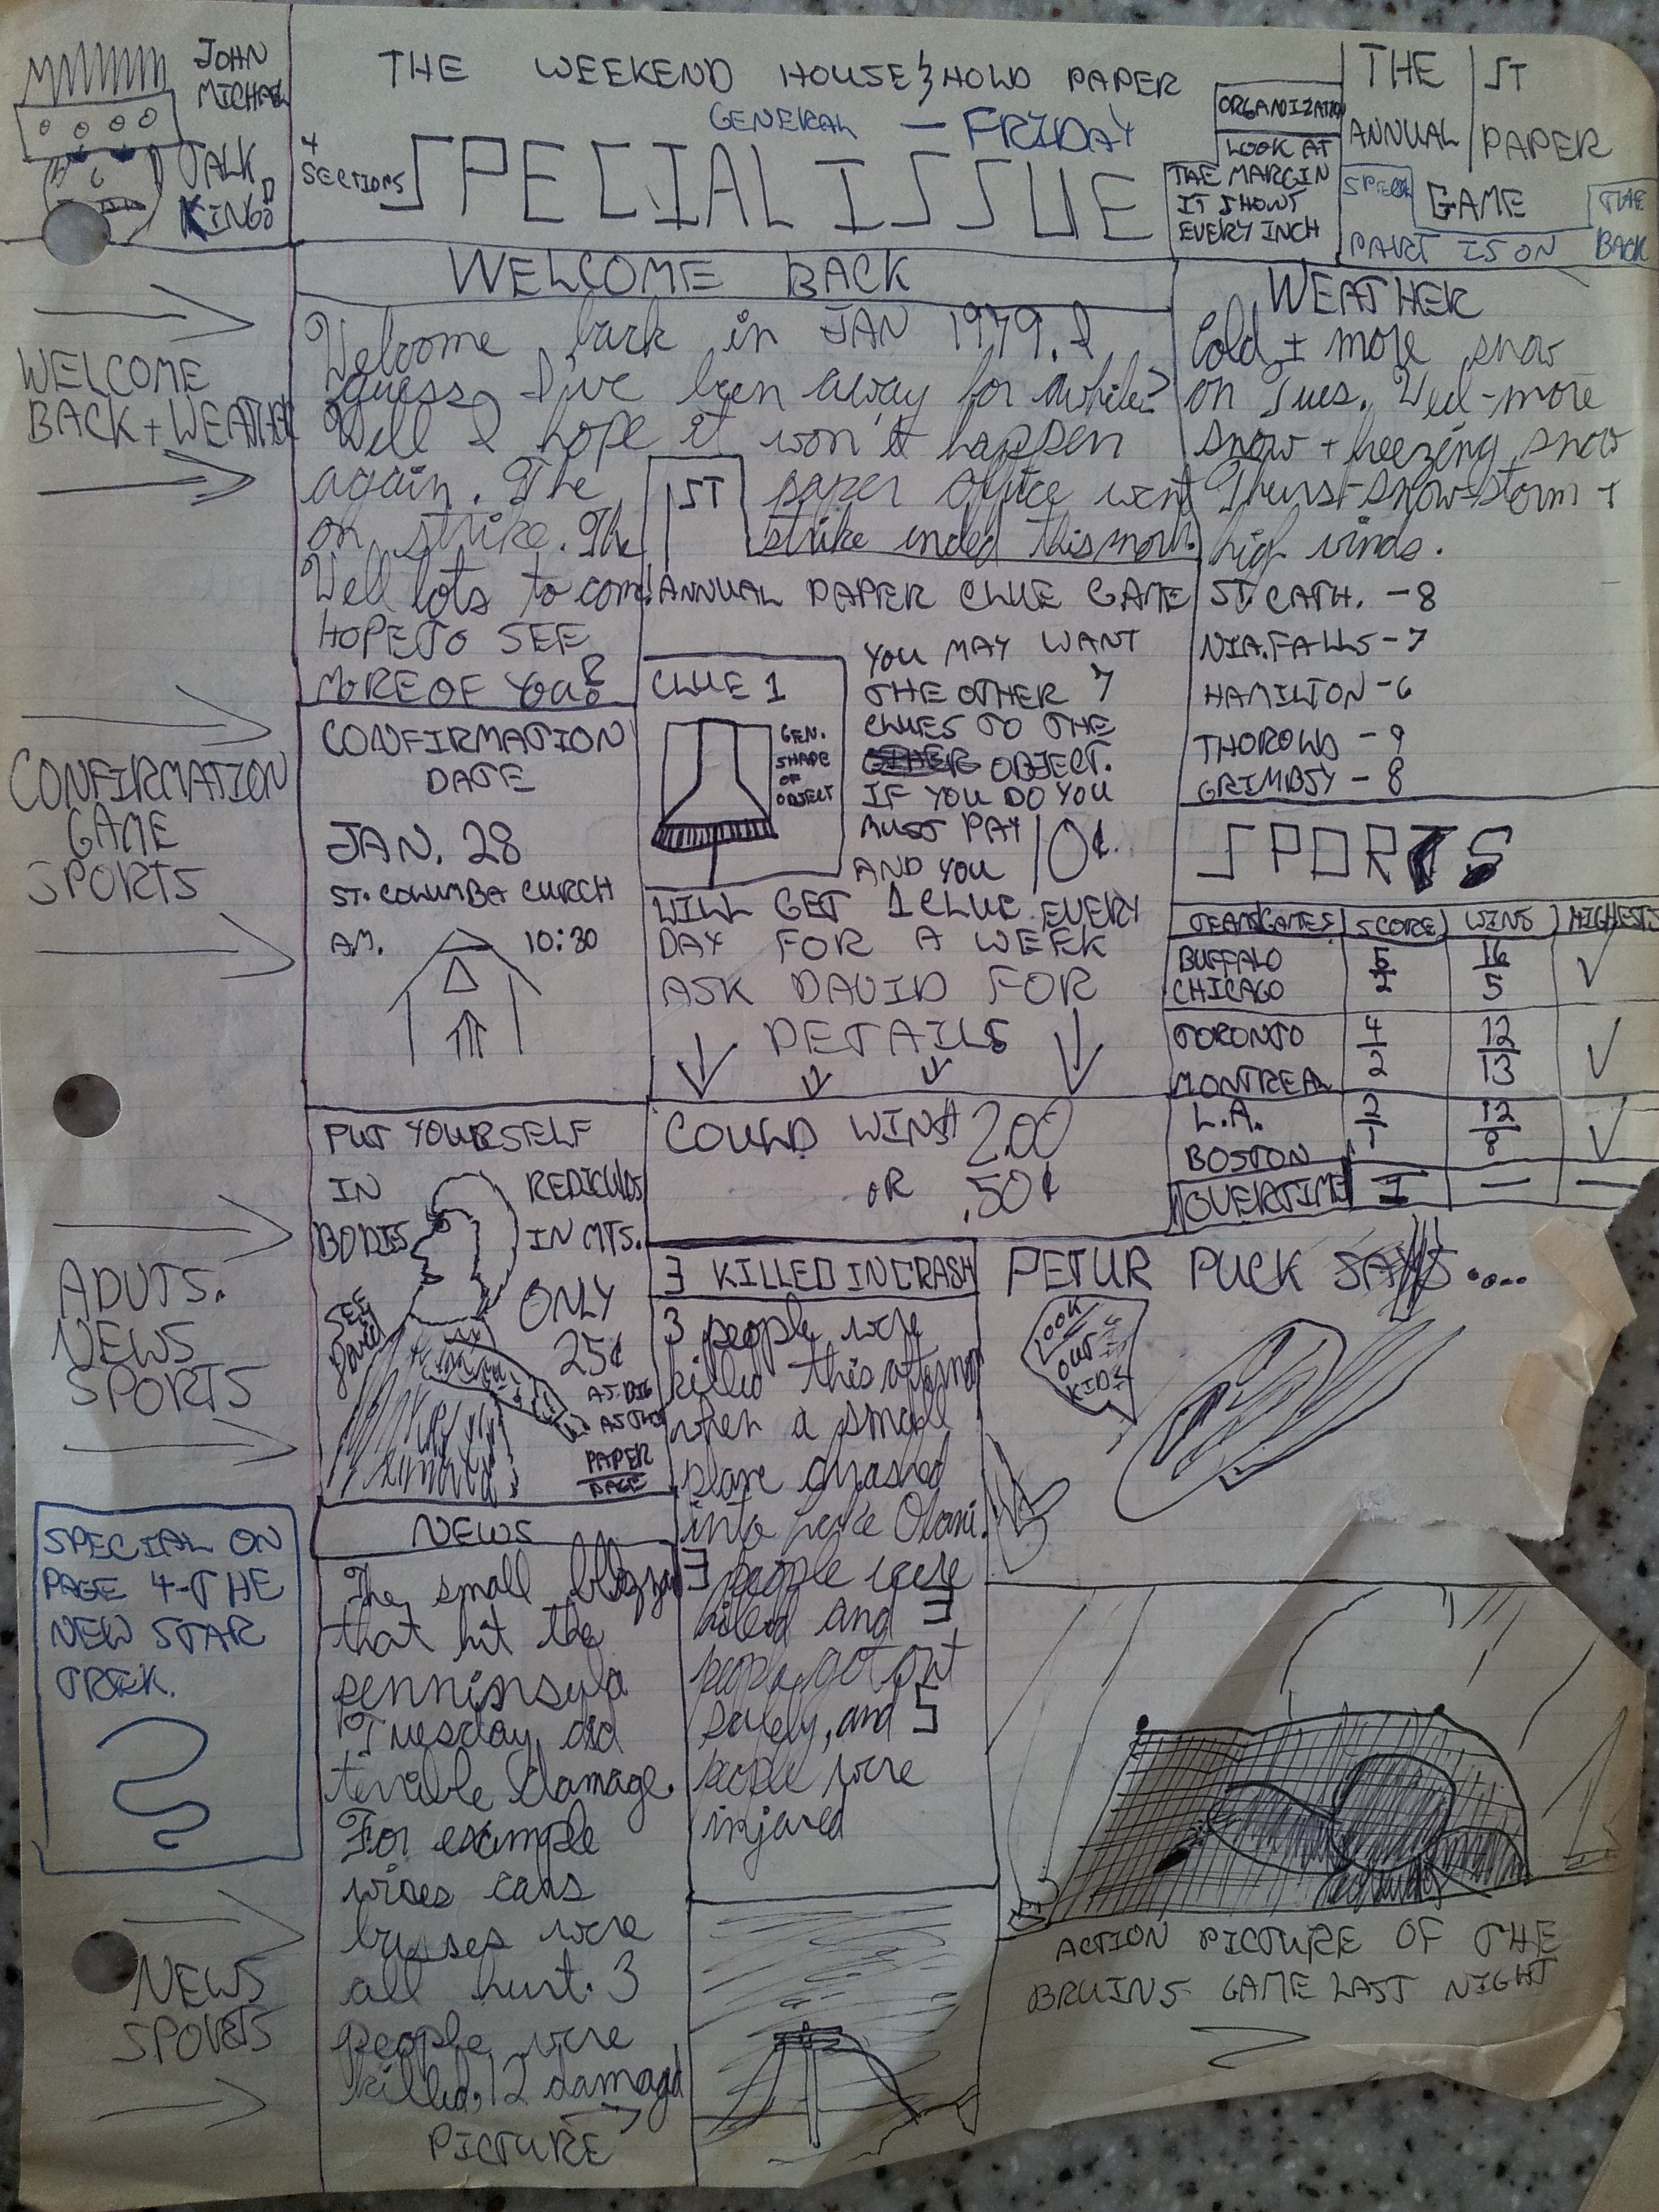 JOHN
MICHAEL
TALK
KING!
THE WEEKEND HOUSE HOLD PAPER
GENERAL - FRIDAY
4
SECTIONS
SPECIAL ISSUE
ORGANIZATION
LOOK AT
THE MARGIN
IT SHOWS
EVERY INCH
THE 1ST
ANNUAL PAPER
GAME
SPECIAL
PART IS ON
THE
BACK
WELCOME
BACK + WEATHER
CONFIRMATION
GAME
SPORTS
ADVTS.
NEWS
SPORTS
SPECIAL ON
PAGE 4-THE
NEW STAR
TREK.
?
NEWS
SPORTS
WELCOME BACK
Welcome back in JAN 1979. I
guess I've been away for awhile?
Well I hope it won't happen
again. The paper office went
on strike. The strike ended this morn.
Well lots to come!
HOPE TO SEE
MORE OF YOU!
WEATHER
Cold + more snow
on Tues. Wed-more
snow + freezing snow
Thurs-snow-storm +
high winds.
ST. CATH. - 8
NIA.FALLS - 7
HAMILTON - 6
THOROLD - 9
GRIMBSY - 8
1ST
ANNUAL PAPER CLUE GAME
CLUE 1
GEN.
SHAPE
OF
OBJECT
YOU MAY WANT
THE OTHER 7
CLUES TO THE
OBJECT.
IF YOU DO YOU
MUST PAY 10¢
AND YOU
WILL GET 1 CLUE EVERY
DAY FOR A WEEK
ASK DAVID FOR
DETAILS
COULD WIN $2.00
OR .50¢
CONFIRMATION
DATE
JAN. 28
ST. COLUMBA CURCH
A.M. 10:30
SPORTS
TEAMS/GAMES SCORE WINS HIGHEST
BUFFALO 5 16
CHICAGO 2 5
TORONTO 4 12
MONTREAL 2 13
L.A. 2 12
BOSTON 1 8
OVERTIME I — —
PUT YOURSELF
IN REDICULOS
BODIES IN MTS.
ONLY
25¢
SEE
David
AS BIG
AS THIS
PAPER
PAGE
3 KILLED IN CRASH
3 people were
killed this afternoon
when a small
plane chrashed
into Lake Olani.
3 people were
killed and 3
people got out
safely, and 5
people were
injured
PETUR PUCK SAYS....
LOOK
OUT
KIDS
NEWS
The small blizzard
that hit the
penninsula
Tuesday did
terrible damage.
For example
wires cars
busses were
all hurt. 3
people were
killed, 12 damagd
PICTURE
ACTION PICTURE OF THE
BRUINS GAME LAST NIGHT